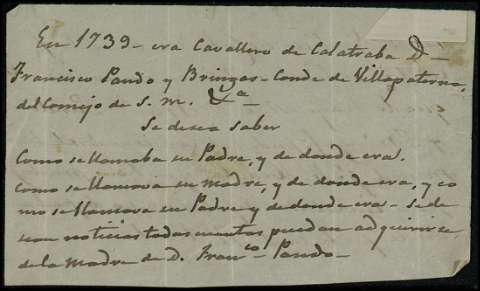 En 1739 - era Cavallero de Calatraba Dⁿ
Francisco Pando y Bringas - Conde de Villapaterna,
del Consejo de S. M. &ª
Se desea saber
Como sellamaba su Padre, y de donde era.
Como sellamava su madre, y de donde era, y co
mo sellamava su Padre y de donde era - Se de
sean noticias todas cuantas puedan adquirirse
de la Madre de D. Franᶜᵒ - Pando -